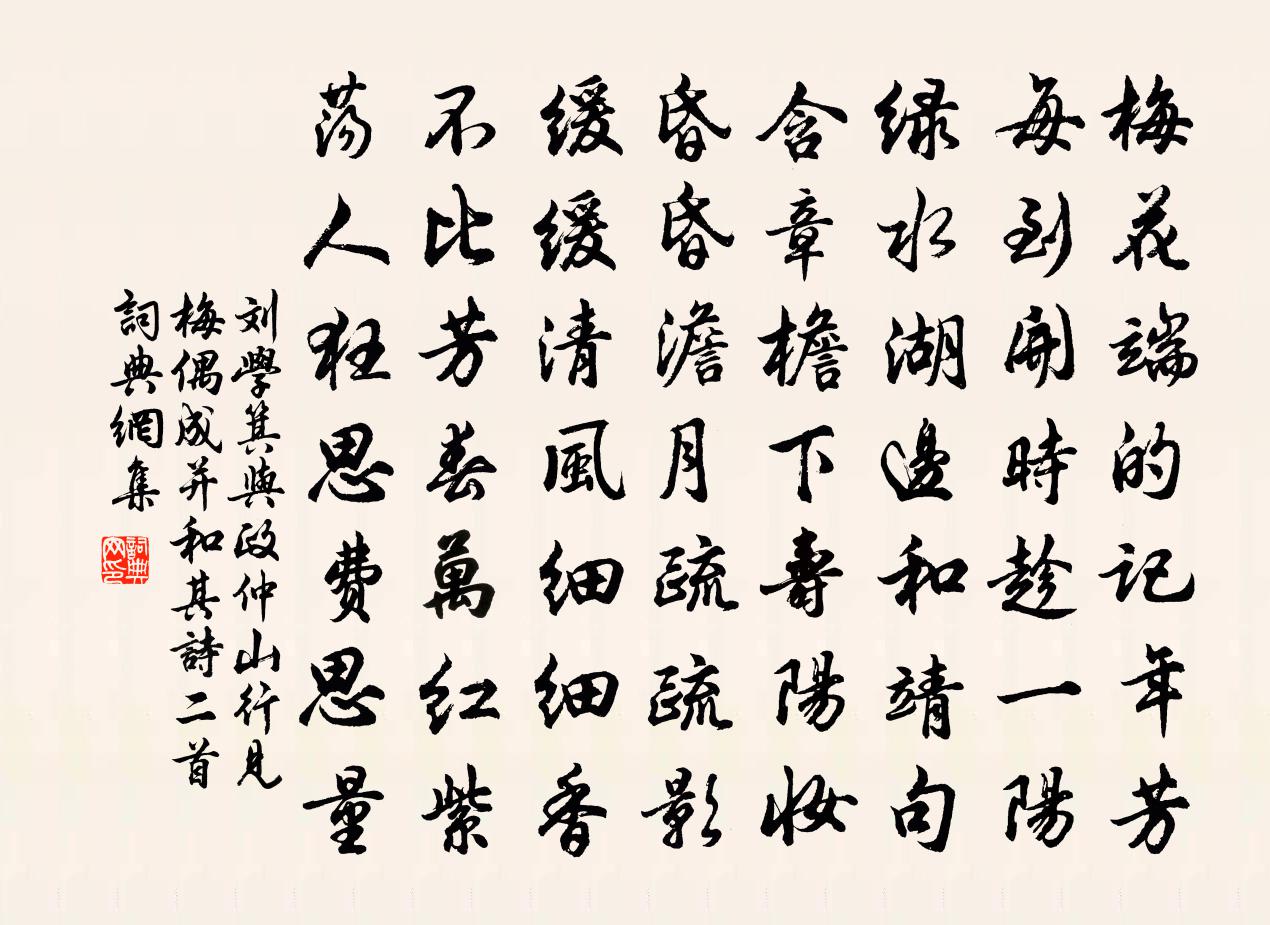 梅花端的记年芳
每到開時趁一陽
绿水湖邊和靖句
含章檐下壽陽妝
昏昏澹月疏疏影
缓缓清風细细香
不比芳春萬红紫
荡人狂思费思量
刘學箕與政仲山行見
梅偶成并和其詩二首
詞典網集
詞典
网印